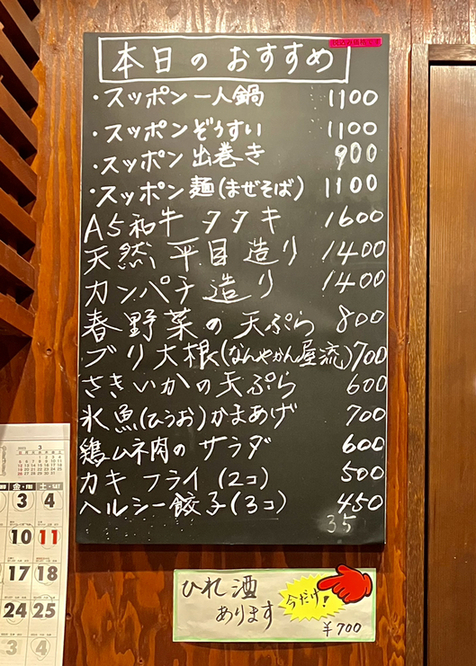 本日のおすすめ
・スッポン一人鍋 1100
・スッポンぞうすい 1100
・スッポン出巻き 900
・スッポン麺(まぜそば) 1100
A5和牛タタキ 1600
天然平目造り 1400
カンパチ造り 1400
春野菜の天ぷら 800
ブリ大根(なんやかん屋流) 700
さきいかの天ぷら 600
氷魚(ひうお)かまあげ 700
鶏ムネ肉のサラダ 600
カキフライ(2コ) 500
ヘルシー餃子(3コ) 450
35
3
金・FRI 土・SAT
3 4
10 11
17 18
24 25
3 4
ひれ酒
あります
今だけ!
¥700